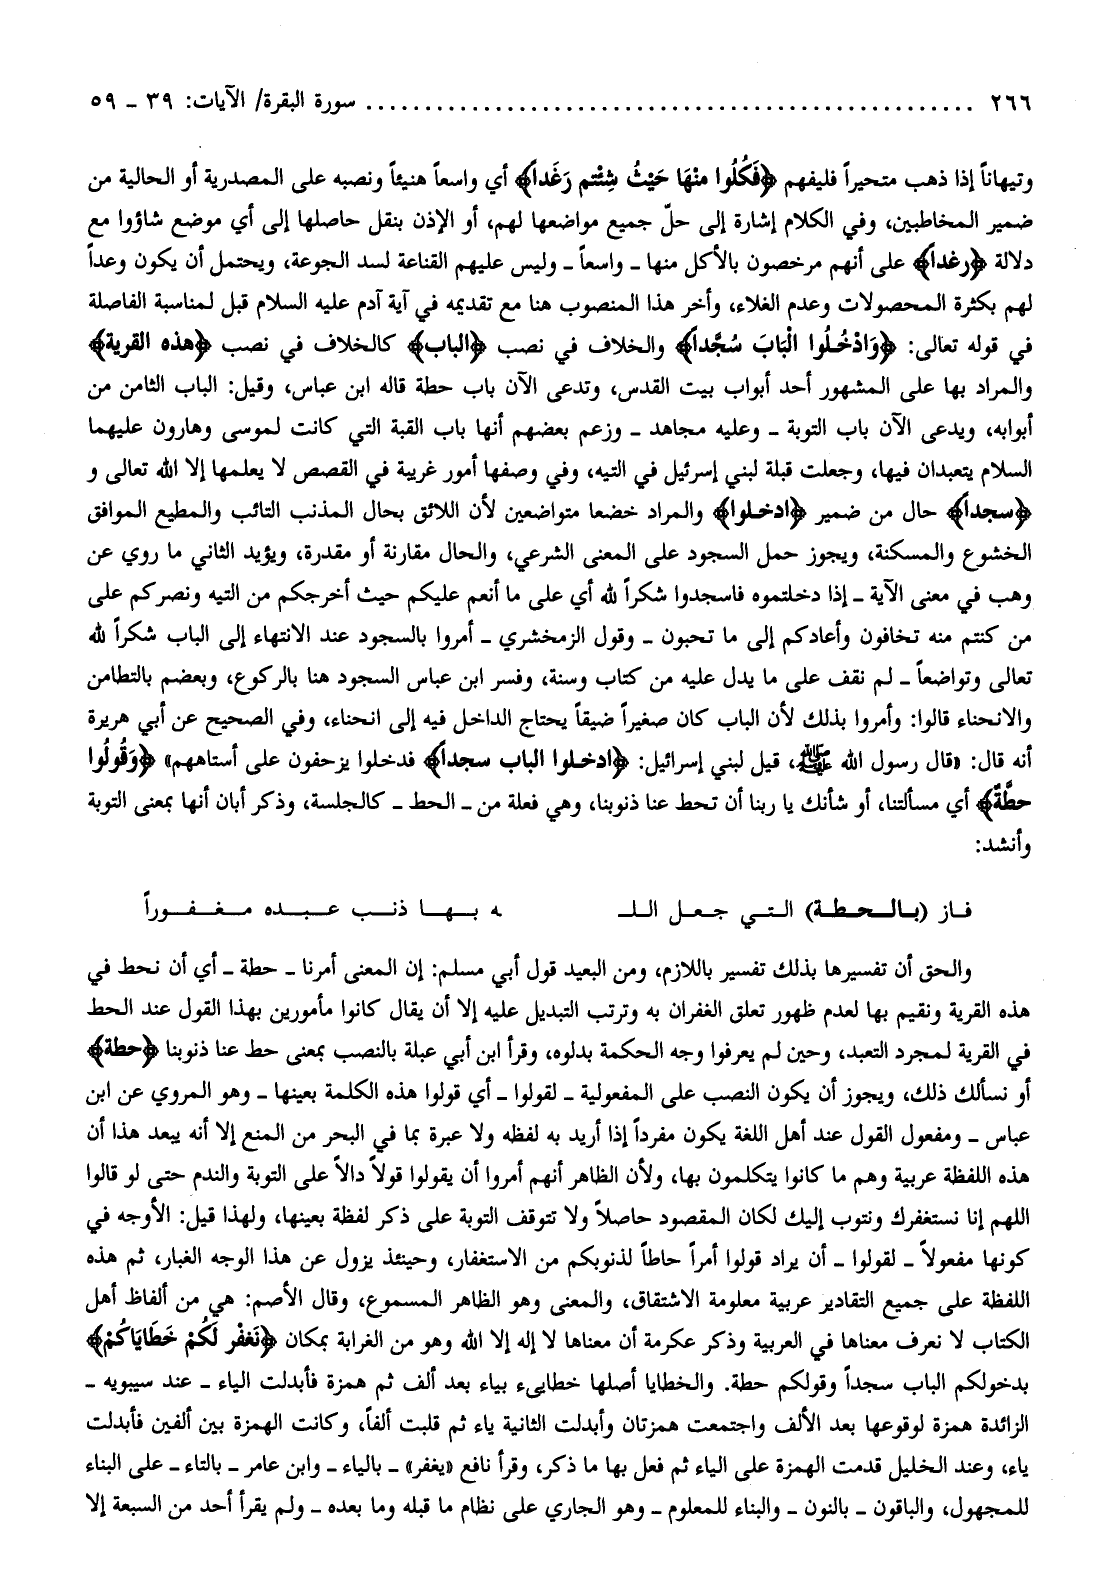 ٢٦٦ .................................................... سورة البقرة/ الآيات: ٣٩ ـ ٥٩
وتيهاناً إذا ذهب متحيراً فليفهم ﴿فَكُلُوا مِنْهَا حَيْثُ شِئْتم رَغَداً﴾ أي واسعاً هنيئاً ونصبه على المصدرية أو الحالية من
ضمير المخاطبين، وفي الكلام إشارة إلى حلّ جميع مواضعها لهم، أو الإذن بنقل حاصلها إلى أي موضع شاؤوا مع
دلالة ﴿رغداً﴾ على أنهم مرخصون بالأكل منها ـ واسعاً ـ وليس عليهم القناعة لسد الجوعة، ويحتمل أن يكون وعداً
لهم بكثرة المحصولات وعدم الغلاء، وأخر هذا المنصوب هنا مع تقديمه في آية آدم عليه السلام قبل لمناسبة الفاصلة
في قوله تعالى: ﴿وَادْخُلُوا الْبَابَ سُجَّداً﴾ والخلاف في نصب ﴿الباب﴾ كالخلاف في نصب ﴿هذه القرية﴾
والمراد بها على المشهور أحد أبواب بيت القدس، وتدعى الآن باب حطة قاله ابن عباس، وقيل: الباب الثامن من
أبوابه، ويدعى الآن باب التوبة ـ وعليه مجاهد ـ وزعم بعضهم أنها باب القبة التي كانت لموسى وهارون عليهما
السلام يتعبدان فيها، وجعلت قبلة لبني إسرئيل في التيه، وفي وصفها أمور غريبة في القصص لا يعلمها إلا الله تعالى و
﴿سجداً﴾ حال من ضمير ﴿ادخلوا﴾ والمراد خضعا متواضعين لأن اللائق بحال المذنب التائب والمطيع الموافق
الخشوع والمسكنة، ويجوز حمل السجود على المعنى الشرعي، والحال مقارنة أو مقدرة، ويؤيد الثاني ما روي عن
وهب في معنى الآية ـ إذا دخلتموه فاسجدوا شكراً لله أي على ما أنعم عليكم حيث أخرجكم من التيه ونصركم على
من كنتم منه تخافون وأعادكم إلى ما تحبون ـ وقول الزمخشري ـ أمروا بالسجود عند الانتهاء إلى الباب شكراً لله
تعالى وتواضعاً ـ لم نقف على ما يدل عليه من كتاب وسنة، وفسر ابن عباس السجود هنا بالركوع، وبعضم بالتطامن
والانحناء قالوا: وأمروا بذلك لأن الباب كان صغيراً ضيقاً يحتاج الداخل فيه إلى انحناء، وفي الصحيح عن أبي هريرة
أنه قال: «قال رسول الله ﷺ، قيل لبني إسرائيل: ﴿ادخلوا الباب سجداً﴾ فدخلوا يزحفون على أستاههم» ﴿وَقُولُوا
حطَّةٌ﴾ أي مسألتنا، أو شأنك يا ربنا أن تحط عنا ذنوبنا، وهي فعلة من ـ الحط ـ كالجلسة، وذكر أبان أنها بمعنى التوبة
وأنشد:
فاز (بالحطة) التي جعل اللـ ـه بها ذنب عبده مغفوراً
والحق أن تفسيرها بذلك تفسير باللازم، ومن البعيد قول أبي مسلم: إن المعنى أمرنا ـ حطة ـ أي أن نحط في
هذه القرية ونقيم بها لعدم ظهور تعلق الغفران به وترتب التبديل عليه إلا أن يقال كانوا مأمورين بهذا القول عند الحط
في القرية لمجرد التعبد، وحين لم يعرفوا وجه الحكمة بدلوه، وقرأ ابن أبي عبلة بالنصب بمعنى حط عنا ذنوبنا ﴿حطة﴾
أو نسألك ذلك، ويجوز أن يكون النصب على المفعولية ـ لقولوا ـ أي قولوا هذه الكلمة بعينها ـ وهو المروي عن ابن
عباس ـ ومفعول القول عند أهل اللغة يكون مفرداً إذا أريد به لفظه ولا عبرة بما في البحر من المنع إلا أنه يبعد هذا أن
هذه اللفظة عربية وهم ما كانوا يتكلمون بها، ولأن الظاهر أنهم أمروا أن يقولوا قولاً دالاً على التوبة والندم حتى لو قالوا
اللهم إنا نستغفرك ونتوب إليك لكان المقصود حاصلاً ولا تتوقف التوبة على ذكر لفظة بعينها، ولهذا قيل: الأوجه في
كونها مفعولاً ـ لقولوا ـ أن يراد قولوا أمراً حاطاً لذنوبكم من الاستغفار، وحينئذ يزول عن هذا الوجه الغبار، ثم هذه
اللفظة على جميع التقادير عربية معلومة الاشتقاق، والمعنى وهو الظاهر المسموع، وقال الأصم: هي من ألفاظ أهل
الكتاب لا نعرف معناها في العربية وذكر عكرمة أن معناها لا إله إلا الله وهو من الغرابة بمكان ﴿نَغفْر لَكُمْ خَطَايَاكُمْ﴾
بدخولكم الباب سجداً وقولكم حطة. والخطايا أصلها خطايىء بياء بعد ألف ثم همزة فأبدلت الياء ـ عند سيبويه ـ
الزائدة همزة لوقوعها بعد الألف واجتمعت همزتان وأبدلت الثانية ياء ثم قلبت ألفاً، وكانت الهمزة بين ألفين فأبدلت
ياء، وعند الخليل قدمت الهمزة على الياء ثم فعل بها ما ذكر، وقرأ نافع «يغفر» ـ بالياء ـ وابن عامر ـ بالتاء ـ على البناء
للمجهول، والباقون ـ بالنون ـ والبناء للمعلوم ـ وهو الجاري على نظام ما قبله وما بعده ـ ولم يقرأ أحد من السبعة إلا